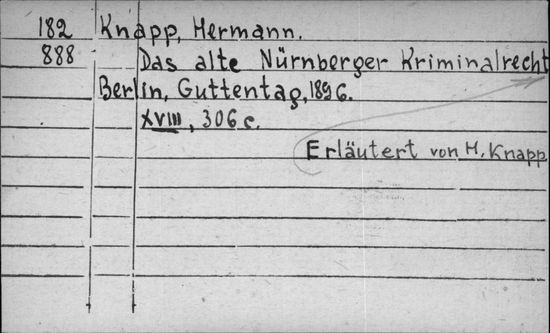 182 Knapp, Hermann.
888 Das alte Nürnberger Kriminalrecht
Berlin, Guttentag, 1896.
XVIII, 306 c.
Erläutert von H. Knapp